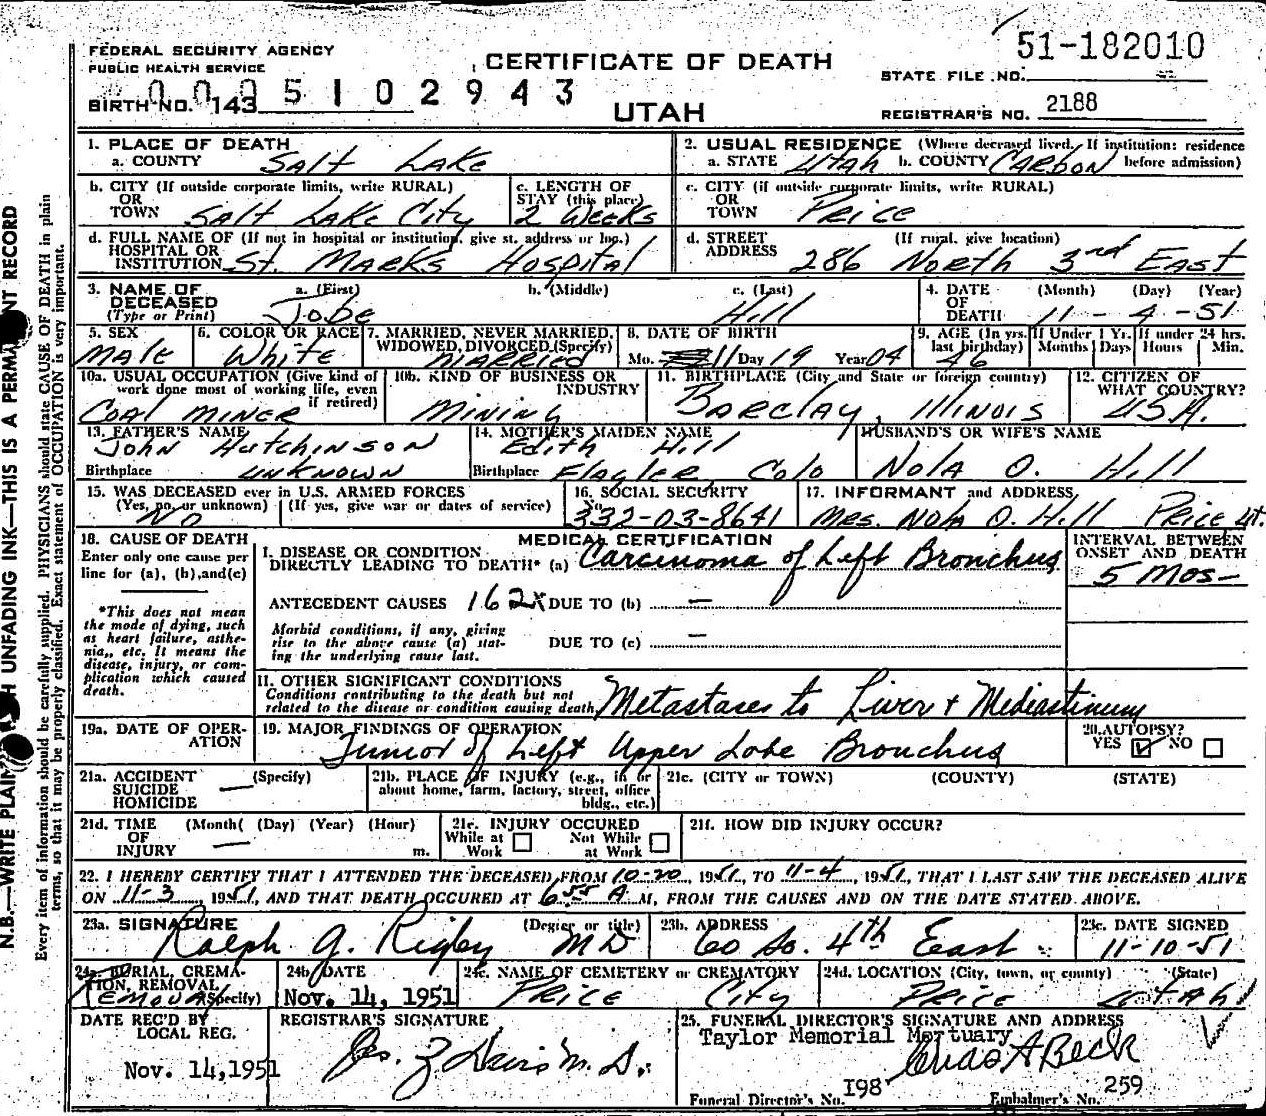 51-182010
FEDERAL SECURITY AGENCY
PUBLIC HEALTH SERVICE
CERTIFICATE OF DEATH
STATE FILE NO.
0005102943
BIRTH NO. 143
UTAH
REGISTRAR'S NO. 2188
N.B.—WRITE PLAINLY WITH UNFADING INK—THIS IS A PERMANENT RECORD
Every item of information should be carefully supplied. PHYSICIANS should state CAUSE OF DEATH in plain
terms, so that it may be properly classified. Exact statement of OCCUPATION is very important.
1. PLACE OF DEATH
a. COUNTY Salt Lake
2. USUAL RESIDENCE (Where deceased lived. If institution: residence
a. STATE Utah b. COUNTY Carbon before admission)
b. CITY (If outside corporate limits, write RURAL)
OR
TOWN Salt Lake City
c. LENGTH OF
STAY (this place)
2 Weeks
c. CITY (if outside corporate limits, write RURAL)
OR
TOWN Price
d. FULL NAME OF (If not in hospital or institution, give st. address or loc.)
HOSPITAL OR
INSTITUTION St. Marks Hospital
d. STREET (If rural, give location)
ADDRESS 286 North 3rd East
3. NAME OF a. (First) b. (Middle) c. (Last)
DECEASED
(Type or Print) Jobe Hill
4. DATE (Month) (Day) (Year)
OF
DEATH 11 - 4 - 51
5. SEX
Male
6. COLOR OR RACE
White
7. MARRIED, NEVER MARRIED,
WIDOWED, DIVORCED (Specify)
Married
8. DATE OF BIRTH
Mo. 11 Day 19 Year 04
9. AGE (In yrs.
last birthday)
46
If Under 1 Yr.
Months Days
If under 24 hrs.
Hours Min.
10a. USUAL OCCUPATION (Give kind of
work done most of working life, even
if retired)
Coal Miner
10b. KIND OF BUSINESS OR
INDUSTRY
Mining
11. BIRTHPLACE (City and State or foreign country)
Barclay, Illinois
12. CITIZEN OF
WHAT COUNTRY?
USA.
13. FATHER'S NAME
John Hutchinson
Birthplace unknown
14. MOTHER'S MAIDEN NAME
Edith Hill
Birthplace Flagler Colo
HUSBAND'S OR WIFE'S NAME
Nola O. Hill
15. WAS DECEASED ever in U.S. ARMED FORCES
(Yes, no, or unknown) (If yes, give war or dates of service)
No
16. SOCIAL SECURITY
No.
332-03-8641
17. INFORMANT and ADDRESS
Mrs. Nola O. Hill Price Ut.
18. CAUSE OF DEATH
Enter only one cause per
line for (a), (b), and (c)
*This does not mean
the mode of dying, such
as heart failure, asthe-
nia,, etc. It means the
disease, injury, or com-
plication which caused
death.
MEDICAL CERTIFICATION
I. DISEASE OR CONDITION
DIRECTLY LEADING TO DEATH* (a) Carcinoma of Left Bronchus
INTERVAL BETWEEN
ONSET AND DEATH
5 Mos-
ANTECEDENT CAUSES 162x DUE TO (b) —
Morbid conditions, if any, giving
rise to the above cause (a) stat-
ing the underlying cause last.
DUE TO (c) —
II. OTHER SIGNIFICANT CONDITIONS
Conditions contributing to the death but not
related to the disease or condition causing death. Metastases to Liver + Mediastinum
19a. DATE OF OPER-
ATION
19. MAJOR FINDINGS OF OPERATION
Tumor of Left Upper Lobe Bronchus
20. AUTOPSY?
YES ☑ NO ☐
21a. ACCIDENT (Specify)
SUICIDE —
HOMICIDE
21b. PLACE OF INJURY (e.g., in or
about home, farm, factory, street, office
bldg., etc.)
21c. (CITY or TOWN) (COUNTY) (STATE)
21d. TIME (Month( (Day) (Year) (Hour)
OF
INJURY — m.
21e. INJURY OCCURED
While at Work ☐ Not While at Work ☐
21f. HOW DID INJURY OCCUR?
22. I HEREBY CERTIFY THAT I ATTENDED THE DECEASED FROM 10-20, 1951, TO 11-4, 1951, THAT I LAST SAW THE DECEASED ALIVE
ON 11-3 1951, AND THAT DEATH OCCURED AT 6:55 A M, FROM THE CAUSES AND ON THE DATE STATED ABOVE.
23a. SIGNATURE (Degree or title)
Ralph G. Rigby MD
23b. ADDRESS
60 So. 4th East
23c. DATE SIGNED
11-10-51
24a. BURIAL, CREMA-
TION, REMOVAL
(Specify)
Removal
24b DATE
Nov. 14, 1951
24c. NAME OF CEMETERY or CREMATORY
Price City
24d. LOCATION (City, town, or county) (State)
Price Utah
DATE REC'D BY
LOCAL REG.
Nov. 14,1951
REGISTRAR'S SIGNATURE
M.D.
25. FUNERAL DIRECTOR'S SIGNATURE AND ADDRESS
Taylor Memorial Mortuary
Chas A Beck
Funeral Director's No. 198
Embalmer's No. 259